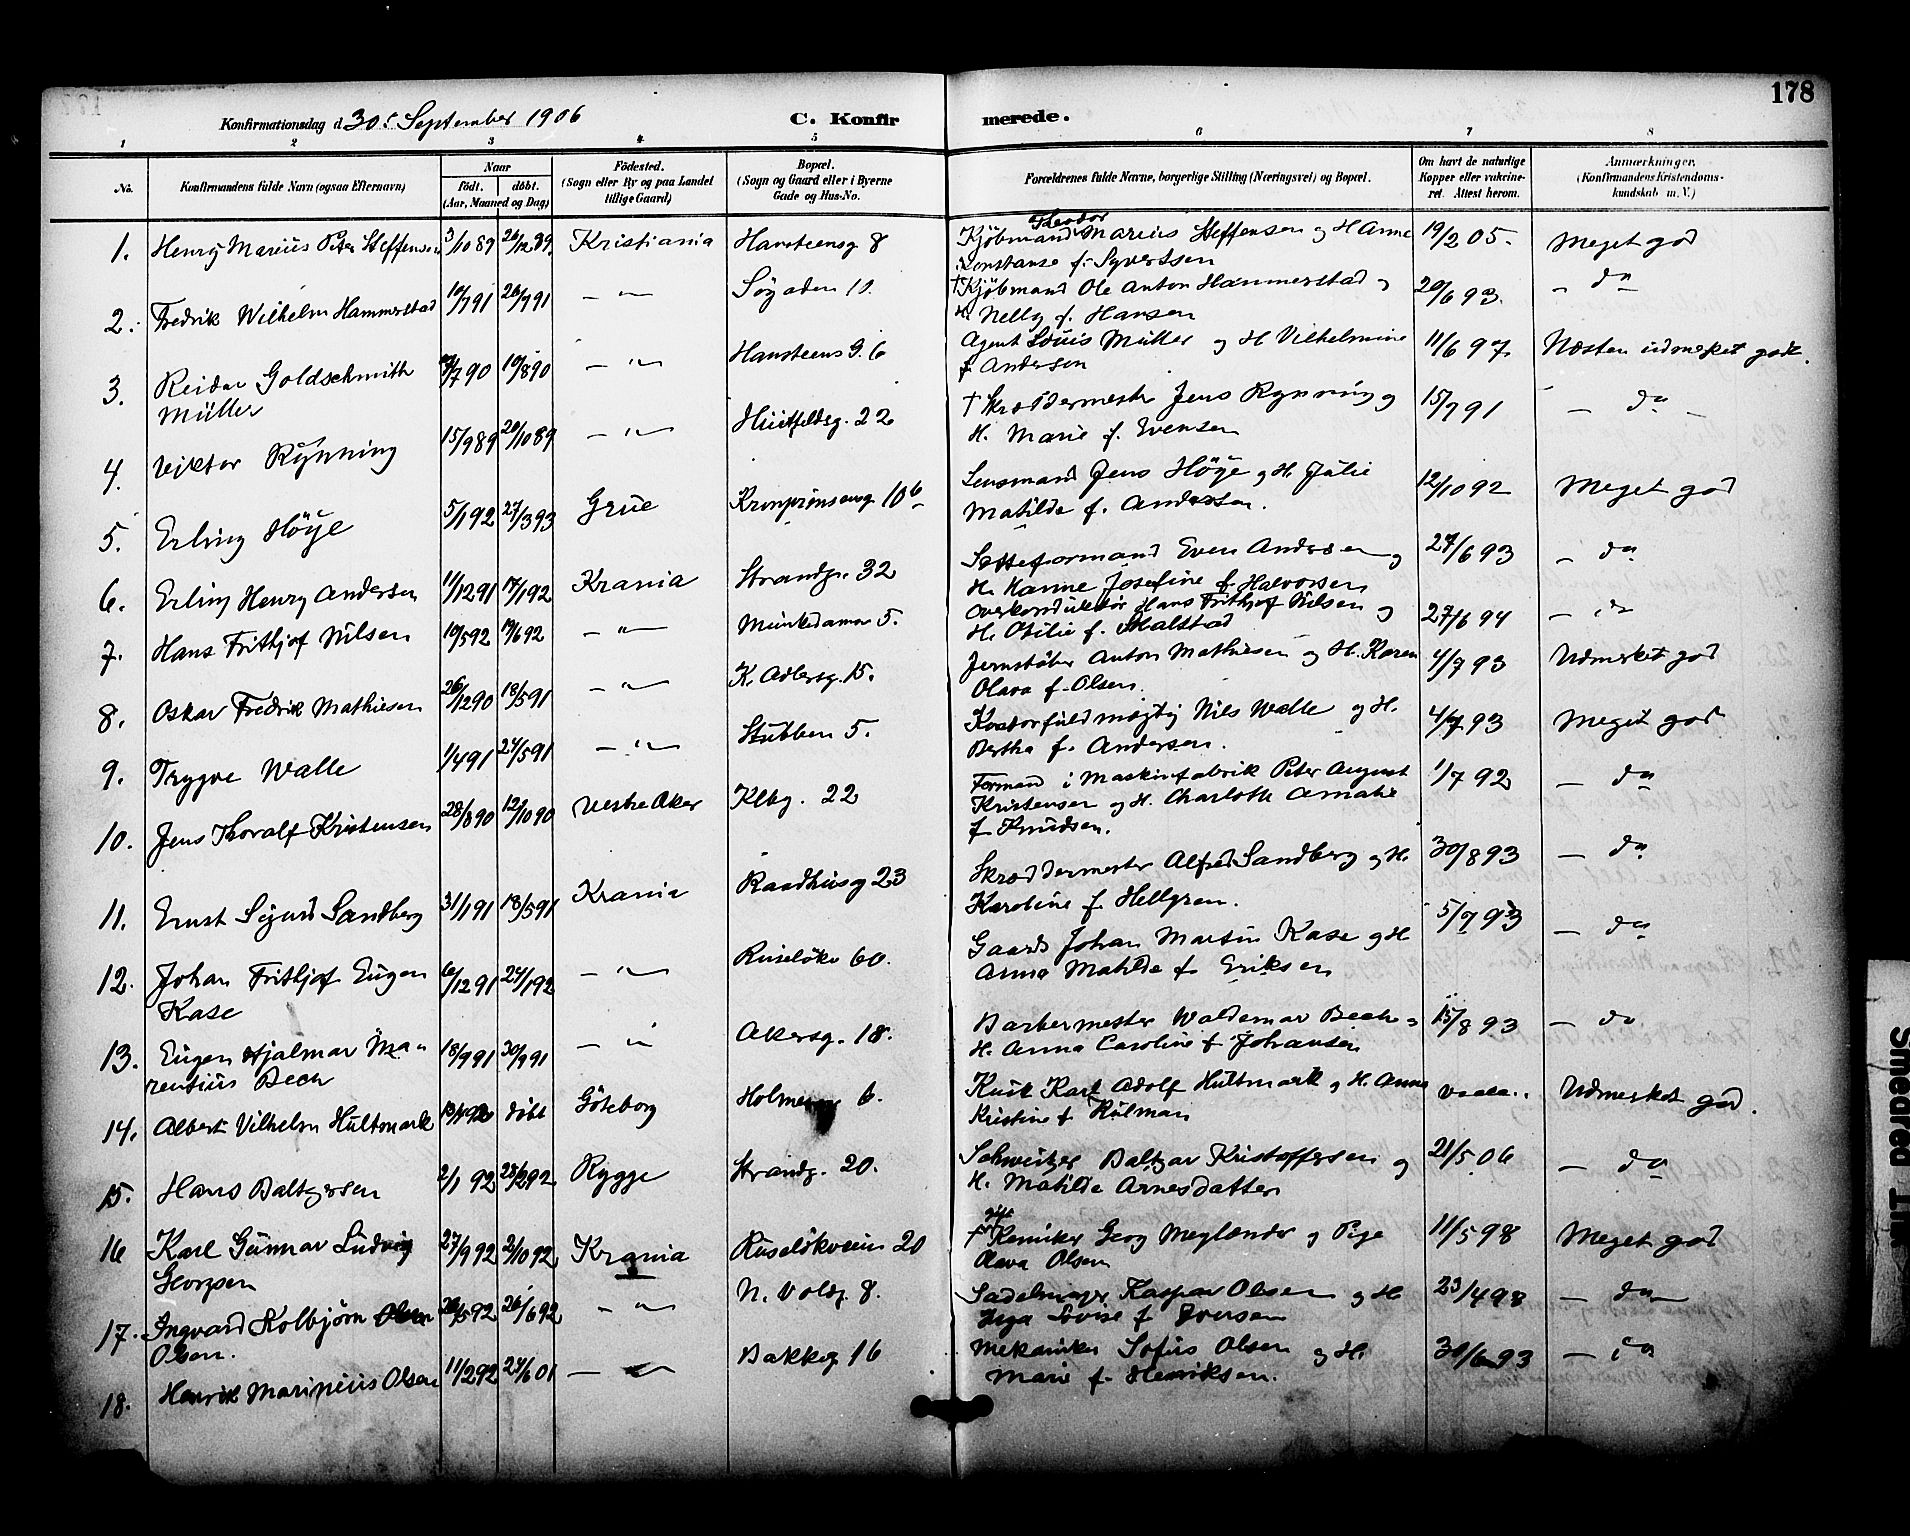 178
Konfirmationsdag d. 30. September 1906
C. Konfirmerede.
1 2 3 4 5 6 7 8
No.
Konfirmandens fulde Navn (ogsaa Efternavn)
Naar
födt. döbt.
(Aar, Maaned og Dag)
Födested.
(Sogn eller By og paa Landet
tillige Gaard)
Bopæl.
(Sogn og Gaard eller i Byerne
Gade og Hus-No.
Forældrenes fulde Navne, borgerlige Stilling (Næringsvei) og Bopæl.
Om havt de naturlige
Kopper eller vakcine-
ret. Attest herom.
Anmærkninger.
(Konfirmandens Kristendoms-
kundskab m. V.)
1. Henry Marius Peter Steffensen 3/10 89 26/12 89. Kristiania Hansteensg 8 Kjöbmand Theodor Marius Steffensen og H Anne 19/2 05. Meget god
Konstanse f. Syvertsen
2. Fredrik Wilhelm Hammerstad 10/7 91 26/7 91 — " — Søgaden 10. † Kjöbmand Ole Anton Hammerstad og 20/6 93. — do
H. Nelly f. Hansen
3. Reidar Goldschmith /7 90 10/8 90 — " — Hansteens G. 6 Agent Louis Müller og H Vilhelmine 11/6 97. Næsten udmerket godt.
Müller
f Andersen
4. Viktor Rynning 15/9 89 20/10 89 — " — Huitfeldsg. 22 † Skræddermester Jens Rynning og 15/7 91 — do —
H. Marie f. Evensen
5. Erling Höye 5/1 92 27/3 93 Grue Kronprinsensg 10 b Lensmand Jens Höye og H. Julie 12/10 92 Meget god
Matilde f. Anderssen.
6. Erling Henry Andersen 11/12 91 17/1 92 Krania Strandg. 32 Sætteformand Even Andersen og 27/6 93 — do
H. Hanne Josefine f. Halvorsen
7. Hans Frithjof Nilsen 10/5 92 19/6 92 — " — Munkedamsv 5. Overkonduktör Hans Frithjof Nilsen og 27/6 94 — do
H. Otilie f. Skalstad
8. Oskar Fredrik Mathiesen 26/12 90 18/5 91 — " — K. Adlersg. 15. Jernstöber Anton Mathiesen og H. Karen 4/7 93 Udmerket god
Olava f. Olsen.
9. Trygve Walle 1/4 91 24/5 91 — " — Stubben 5. Kontorfuldmægtig Nils Walle og H. 4/7 93 Meget god
Bertha f. Andersen.
10. Jens Thoralf Kristensen 28/8 90 12/10 90 Vestre Aker Klbg. 22 Formand i Maskinfabrik Peter August 1/7 92 — do
Kristensen og H. Charlotte Amalie
f Knudsen.
11. Ernst Sigurd Sandberg 31/1 91 18/5 91 Krania Raadhusg 23 Skræddermester Alfred Sandberg og H. 30/8 93 — do
Karoline f. Hellgren.
12. Johan Frithjof Eugen 6/12 91 24/1 92 — " — Ruselökv 60. Gaards Johan Martin Kase og H 5/7 93 — do
Kase
Anna Matilde f. Eriksen
13. Eugen Hjalmar Mau- 18/9 91 30/9 91 — " Akersg. 18. Barbermester Waldemar Bech og 15/8 93 — do
rentius Bech
H. Anna Caroline f Johansen
14. Albert Vilhelm Hultmark döbt Göteborg 6. Kusk Karl Adolf Hultmark og H. Anna Udmerket god.
Kristine f Hulman
15. Hans Baltzersen 2/1 92 28/2 92 Rygge Strandg. 20. Schweitzer Baltzar Kristoffersen og 21/5 06 — do
H. Matilde Arnesdatter
16 Karl Gunnar Ludvig 27/9 92 /10 92 Krania Ruselökveien 20 Kemiker Georg Meglander og Pige 11/5 98 Meget god
Georgsen
Olava Olsen
17. Ingvard Kolbjörn 26/5 92 26/6 92 — " — N. Voldg. 8. Sadelmager Kaspar Olsen og H 23/4 98 — do
Olsen.
Inga Lovise f Jonsen
18. Henrik Marinius Olsen 11/2 92 24/6 01 — " — Bakkeg 16 Mekaniker Sofus Olsen og H. 30/6 93 — do
Marie f. Henriksen.
Smeared Ink